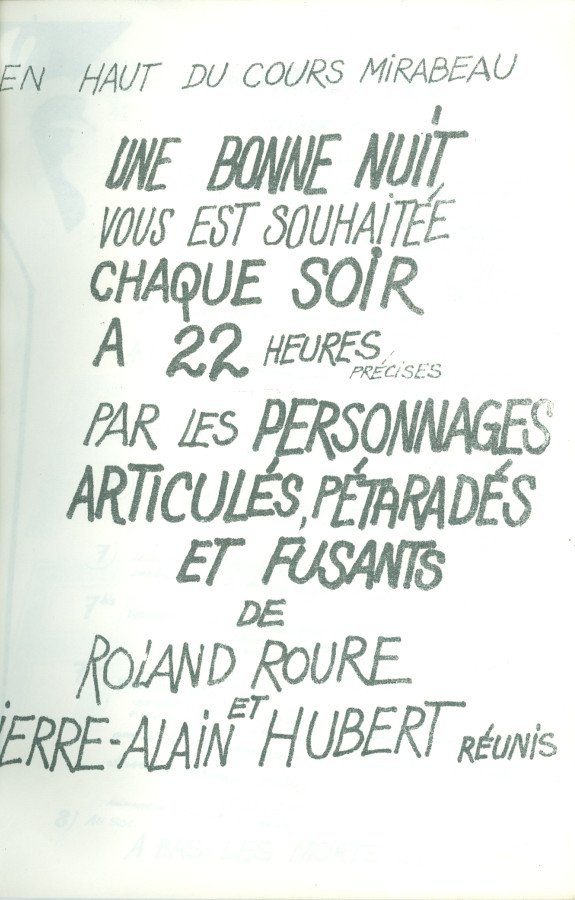 EN HAUT DU COURS MIRABEAU
UNE BONNE NUIT
VOUS EST SOUHAITÉÉ
CHAQUE SOIR
A 22 HEURES PRÉCISES
PAR LES PERSONNAGES
ARTICULÉS, PÉTARADÉS
ET FUSANTS
DE
ROLAND ROURE
ET
IERRE-ALAIN HUBERT RÉUNIS